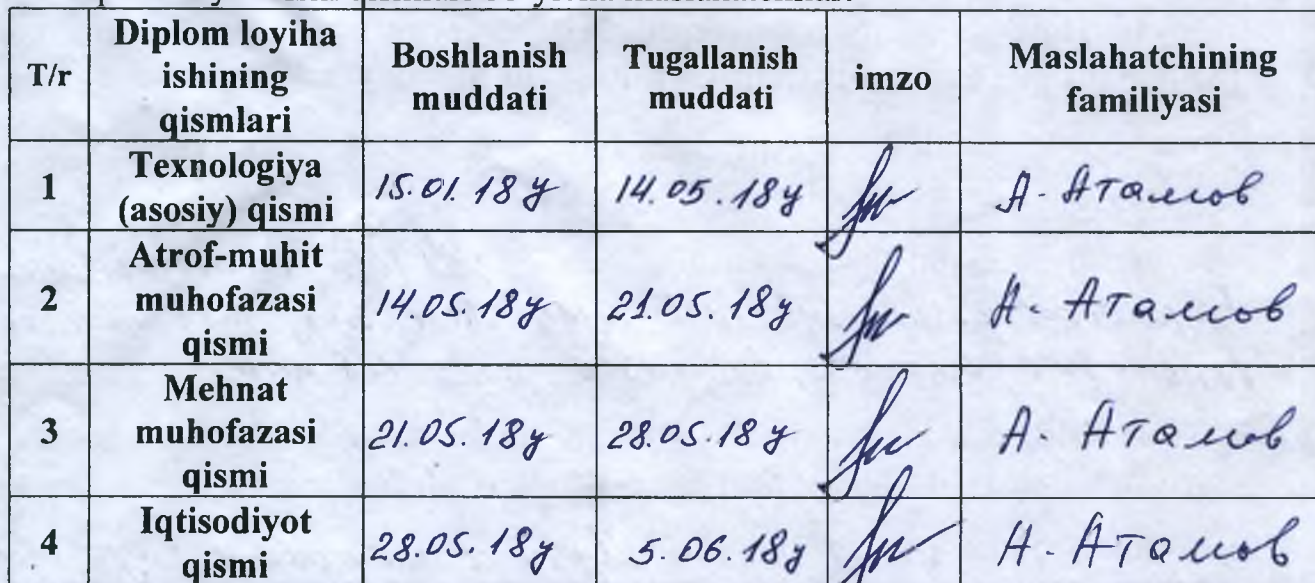 T/r | Diplom loyiha ishining qismlari | Boshlanish muddati | Tugallanish muddati | imzo | Maslahatchining familiyasi
1 | Texnologiya (asosiy) qismi | 15.01.18 y | 14.05.18 y | А. Атамов
2 | Atrof-muhit muhofazasi qismi | 14.05.18 y | 21.05.18 y | А. Атамов
3 | Mehnat muhofazasi qismi | 21.05.18 y | 28.05.18 y | А. Атамов
4 | Iqtisodiyot qismi | 28.05.18 y | 5.06.18 y | А. Атамов